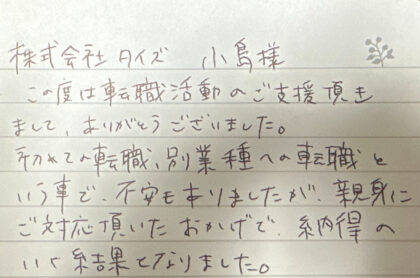 株式会社タイズ 小島様
この度は転職活動のご支援頂き
まして、ありがとうございました。
初めての転職、別業種への転職と
いう事で、不安もありましたが、親身に
ご対応頂いたおかげで、納得の
いく結果となりました。